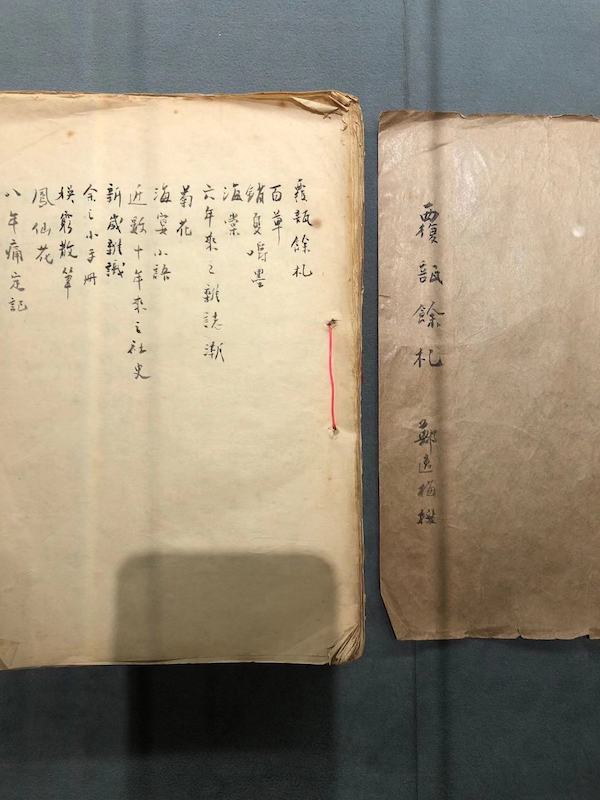 覆瓿餘札
鄭逸梅撰
覆瓿餘札
百草
銷夏嚼墨
海棠
六年來之雜誌潮
菊花
海宴小語
近數十年來之社史
新歲雜識
余之小手冊
窮散筆
鳳仙花
八年痛定記